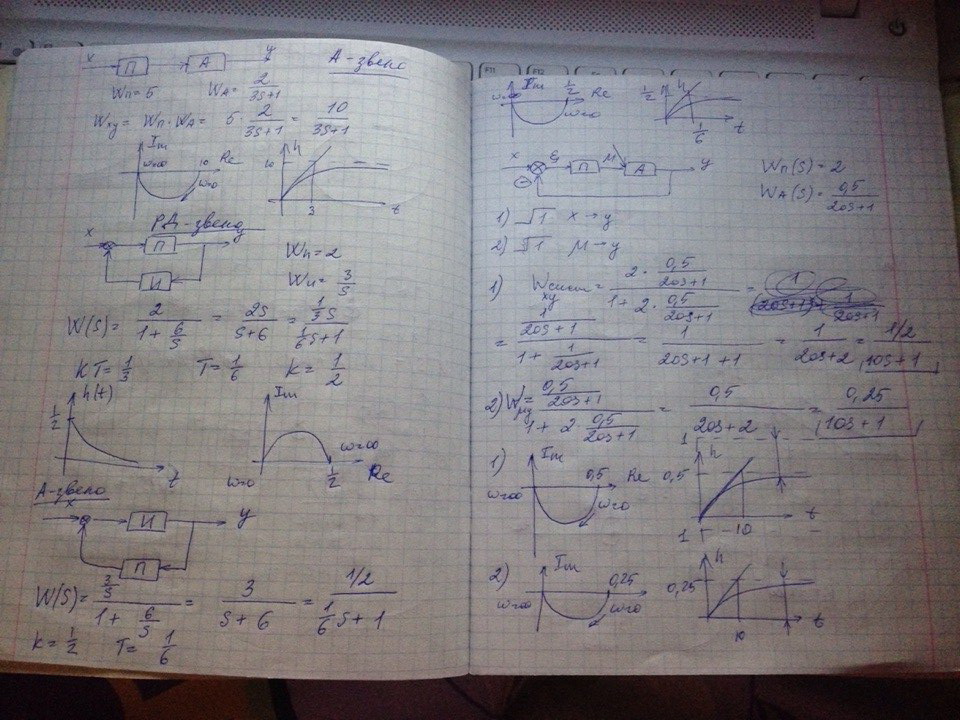 x П А y А-звено
Wп=5 WА= 2/(3s+1)
Wxy = Wп·WА = 5·2/(3s+1) = 10/(3s+1)
Im ω=∞ 10 Re ω=0
h 10 3 t
РД-звено
x П y
И
Wп=2
Wи= 3/s
W(s)= 2/(1+6/s) = 2s/(s+6) = (1/3 s)/(1/6 s+1)
KT=1/3 T=1/6 K=1/2
h(t) 1/2 t
Im ω=∞ ω=0 1/2 Re
А-звено
x И y
П
W(s)= (3/s)/(1+6/s) = 3/(s+6) = (1/2)/(1/6 s+1)
K=1/2 T=1/6
Im 1/2 Re ω=∞ ω=0
1/2 h 1/6 t
x ε П μ А y
Wп(s)=2
WА(s)= 0,5/(20s+1)
1) 1 x→y
2) 1 μ→y
1) Wсист xy = (2·0,5/(20s+1))/(1+2·0,5/(20s+1)) =
= (1/(20s+1))/(1+1/(20s+1)) = 1/(20s+1+1) = 1/(20s+2) = (1/2)/(10s+1)
2) Wμy = (0,5/(20s+1))/(1+2·0,5/(20s+1)) = 0,5/(20s+2) = 0,25/(10s+1)
1) Im 0,5 Re ω=∞ ω=0
1 h 0,5 10 t
2) Im 0,25 ω=∞ ω=0
1 h 0,25 10 t